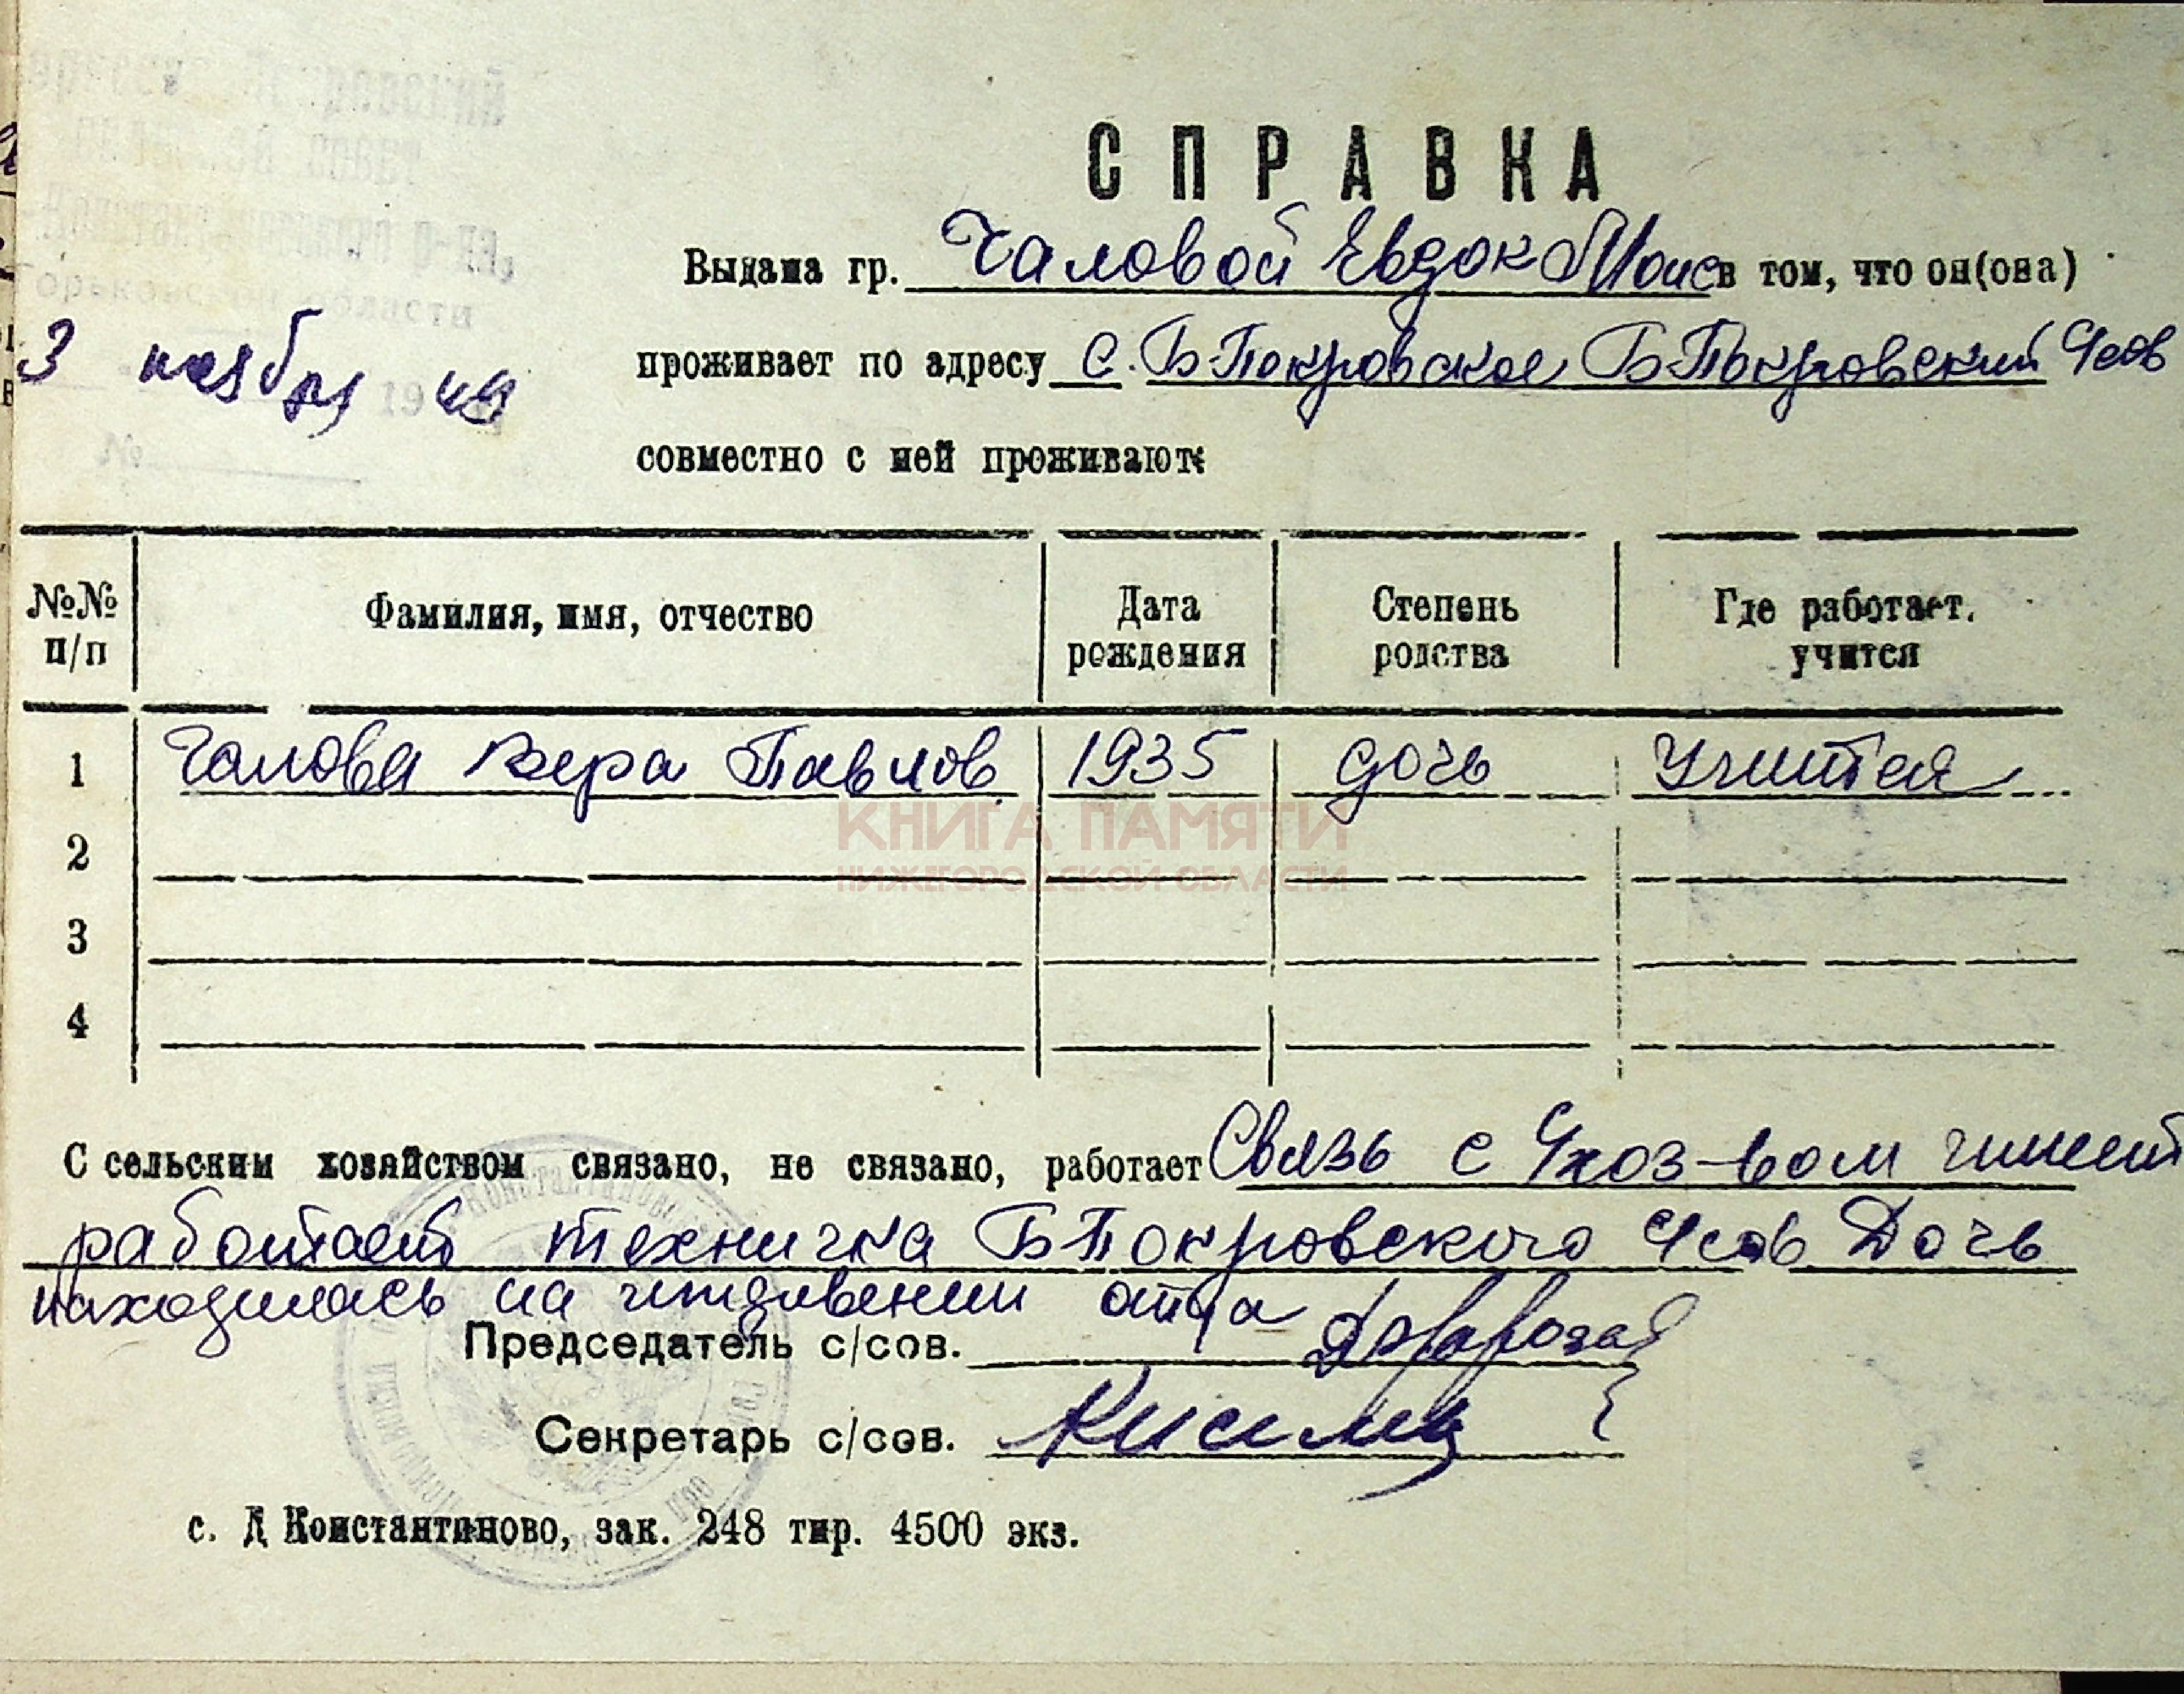 СПРАВКА
Выдана гр. Чаловой Евдок Моис в том, что он(она)
проживает по адресу с. Б-Покровское Б-Покровский
3 ноября 1949
№
совместно с ней проживают:
№№ п/п
Фамилия, имя, отчество
Дата рождения
Степень родства
Где работает, учится
1 Чалова Вера Павлов 1935 дочь учится
КНИГА ПАМЯТИ
НИЖЕГОРОДСКОЙ ОБЛАСТИ
2
3
4
С сельским хозяйством связано, не связано, работает Связь с с/хоз-вом имеет
работает техничка Б-Покровского с/сов Дочь
находилась на иждивении отца
Председатель с/сов.
Секретарь с/сов.
с. Д Константиново, зак. 248 тир. 4500 экз.